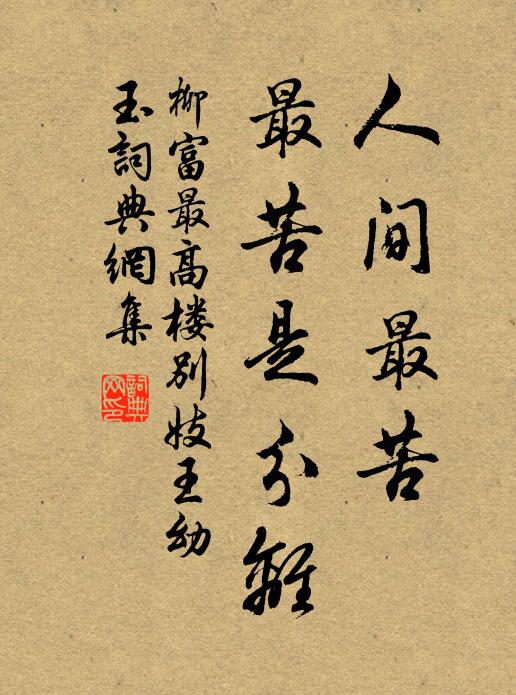 人間最苦
最苦是分離
柳富最高楼別妓王幼
玉詞典網集
詞典网印